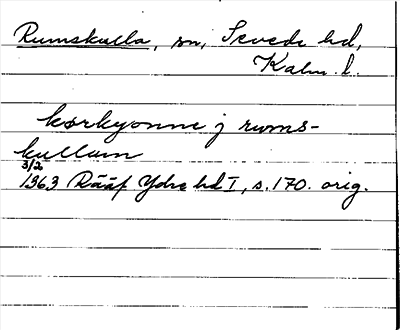 Rumskulla, sn, Sevede hd,
Kalm. l.
kørkyonne j rums-
kullam
3/2
1363 Rääf Ydre hd I, s. 170. orig.